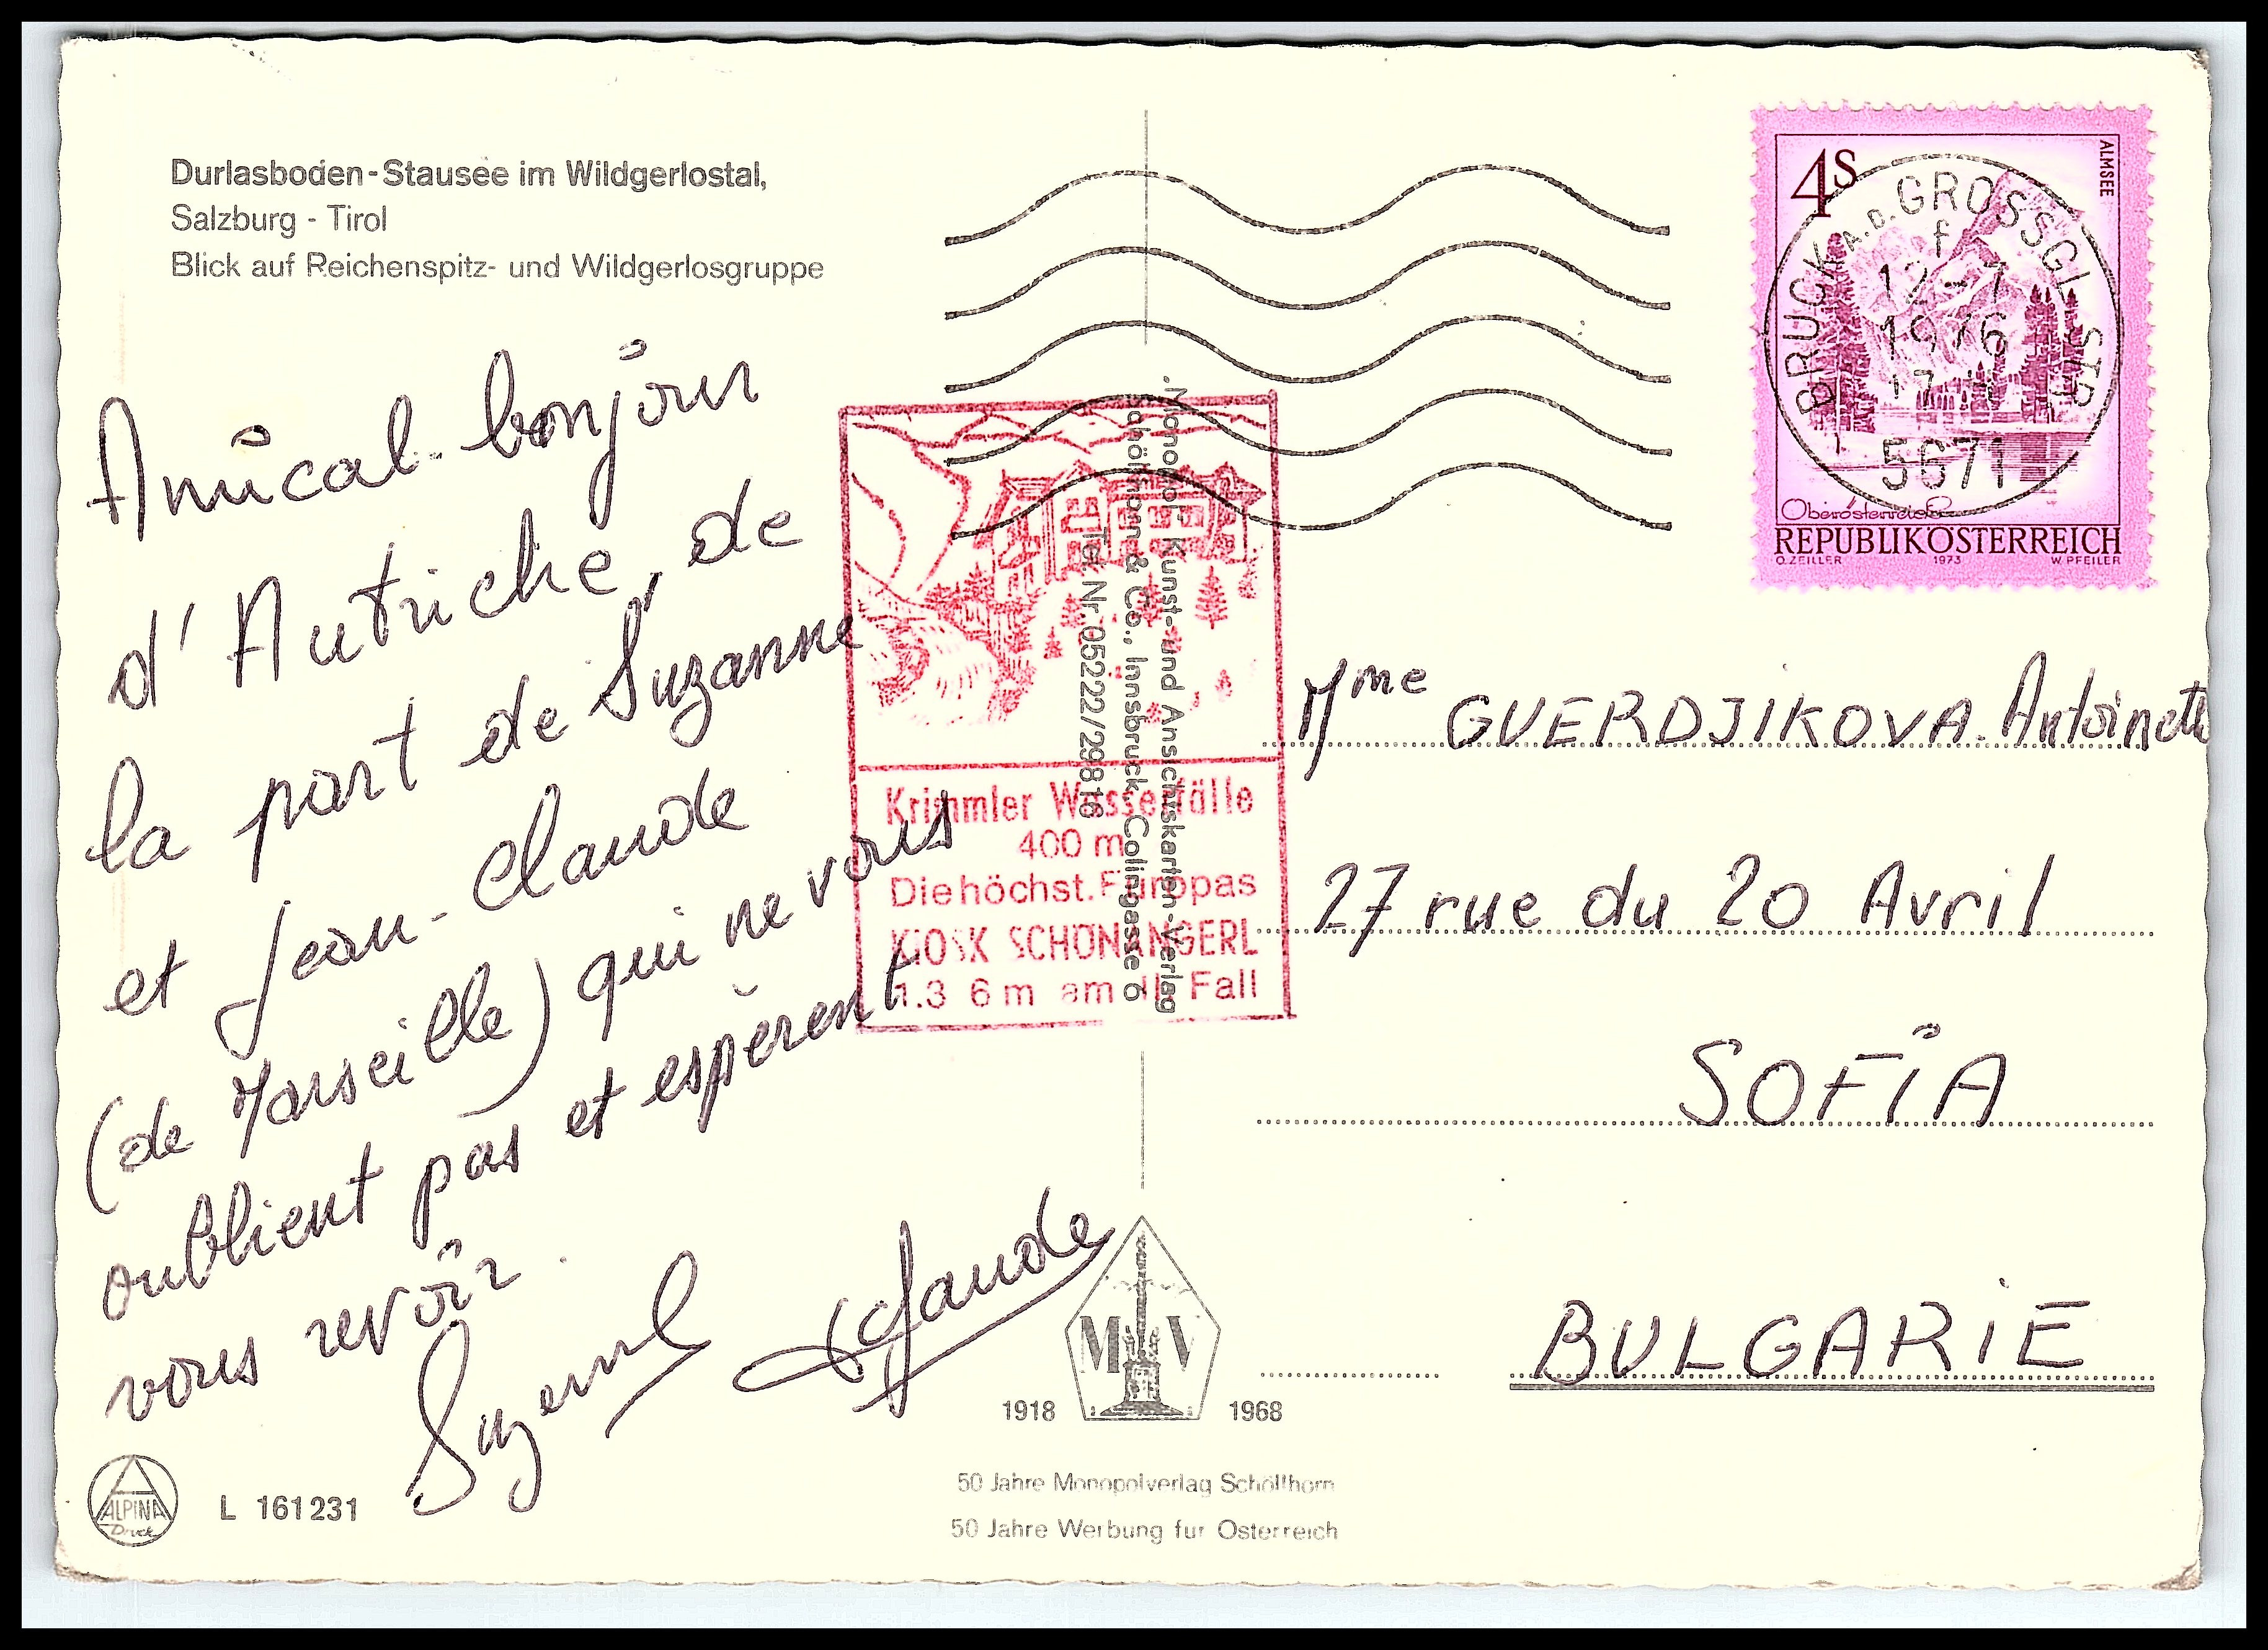 Durlasboden-Stausee im Wildgerlostal,
Salzburg - Tirol
Blick auf Reichenspitz- und Wildgerlosgruppe
Amical bonjour
d'Autriche, de
la part de Suzanne
et Jean-Claude
(de Marseille) qui ne vous
oublient pas et espèrent
vous revoir.
Suzanne Claude
ALPINA
Druck
L 161231
Monopol- Kunst- und Ansichtskarten-Verlag
Schöllhorn & Co., Innsbruck, Colingasse 6
Tel. Nr. 05222/29816
Krimmler Wasserfälle
400 m
Die höchst. Europas
KIOSK SCHÖNANGERL
1.3 6 m am II. Fall
M V
1918 1968
50 Jahre Monopolverlag Schöllhorn
50 Jahre Werbung für Österreich
4S
ALMSEE
BRUCK A.D. GROSSGL.STR.
f
12-7
1976
17
5671
Oberösterreich
REPUBLIK ÖSTERREICH
O. ZEILLER 1973 W. PFEILER
Mme GUERDJIKOVA Antoinette
27 rue du 20 Avril
SOFIA
BULGARIE